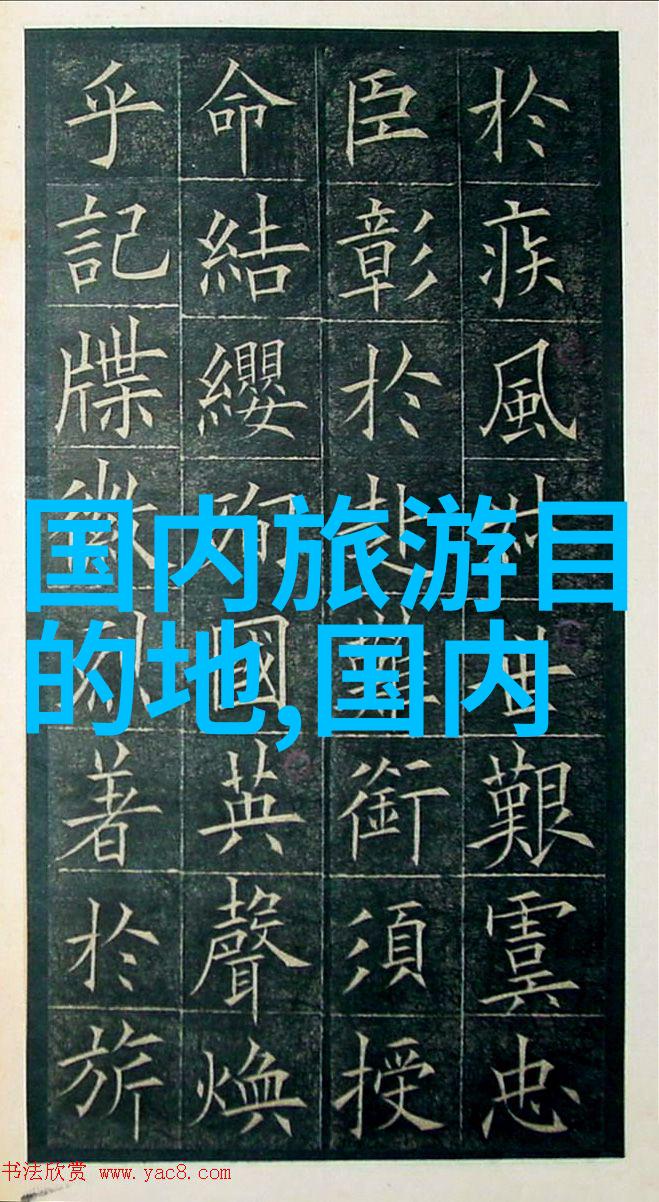 於疾風叔世艱虞忠
臣彰於赴難銜須授
命結纓殉國英聲煥
乎記牒徽烈著於旂
国内旅游目
的地,国内
书法欣赏 www.yac8.com